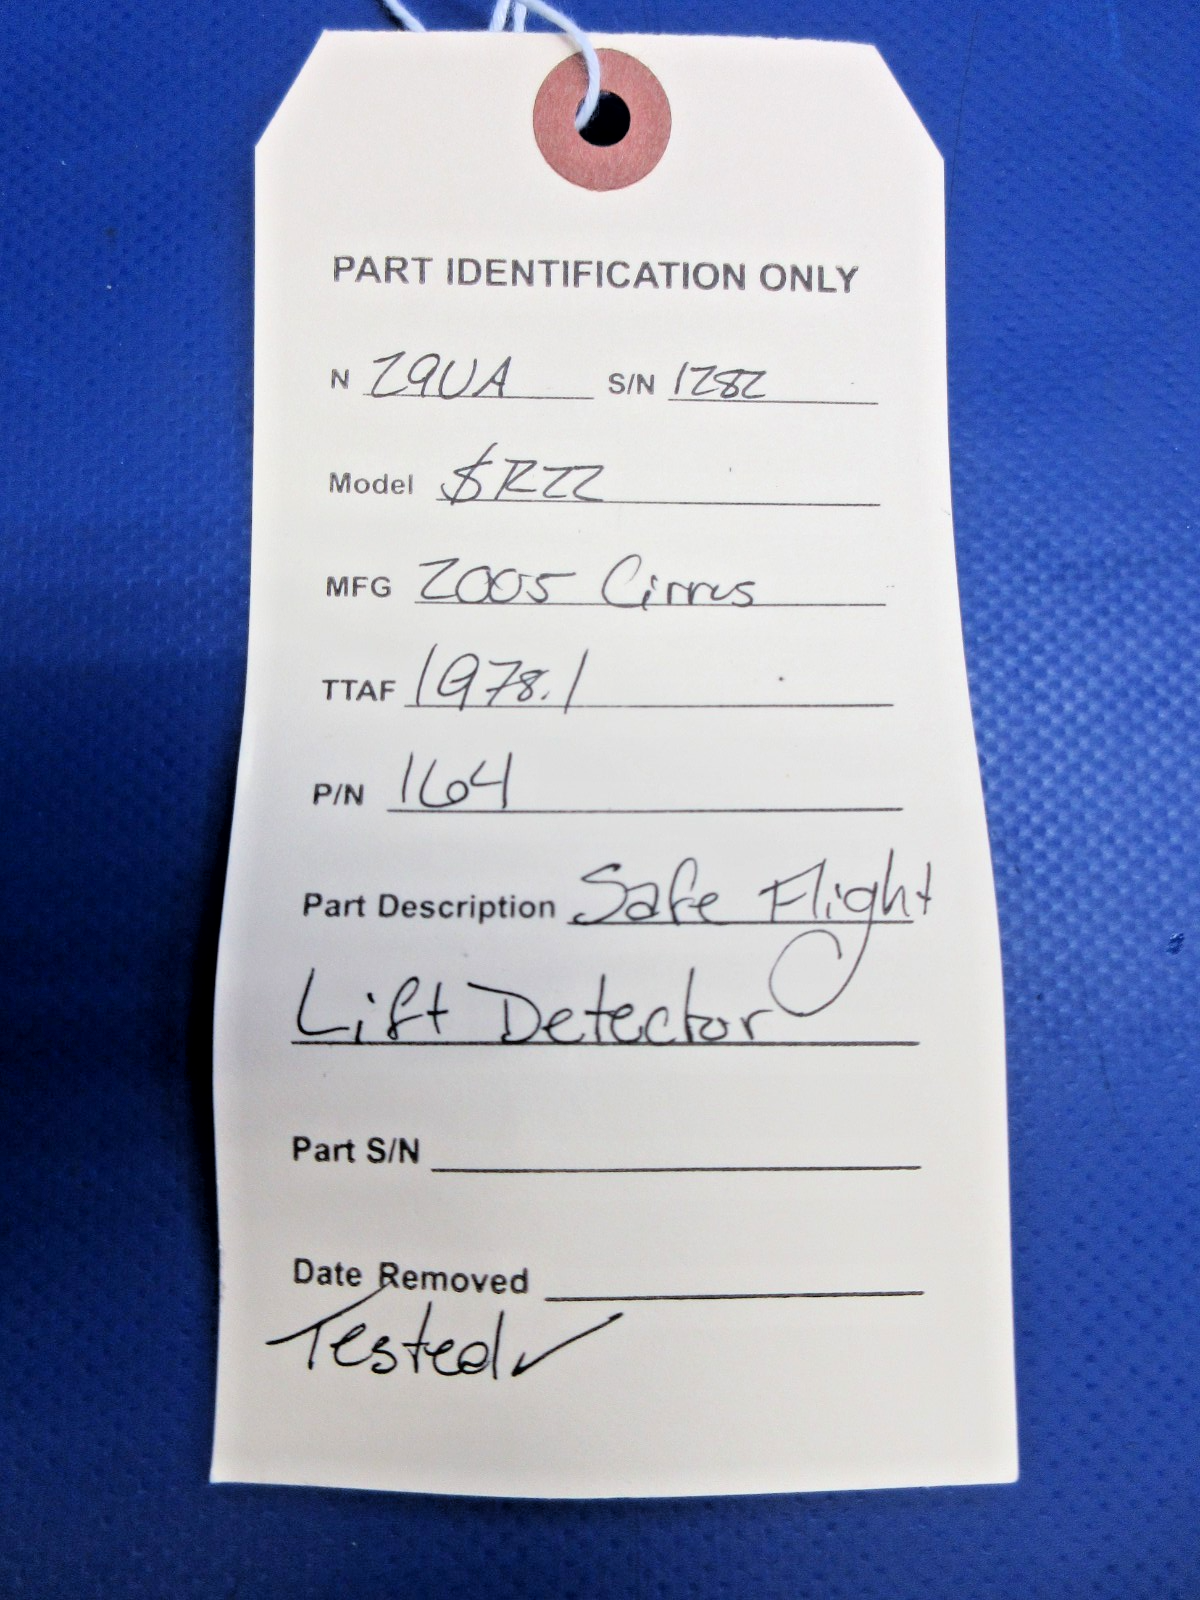 PART IDENTIFICATION ONLY
N 29UA S/N 1282
Model SR22
MFG 2005 Cirrus
TTAF 1978.1
P/N 164
Part Description Safe Flight
Lift Detector
Part S/N
Date Removed
Tested ✓